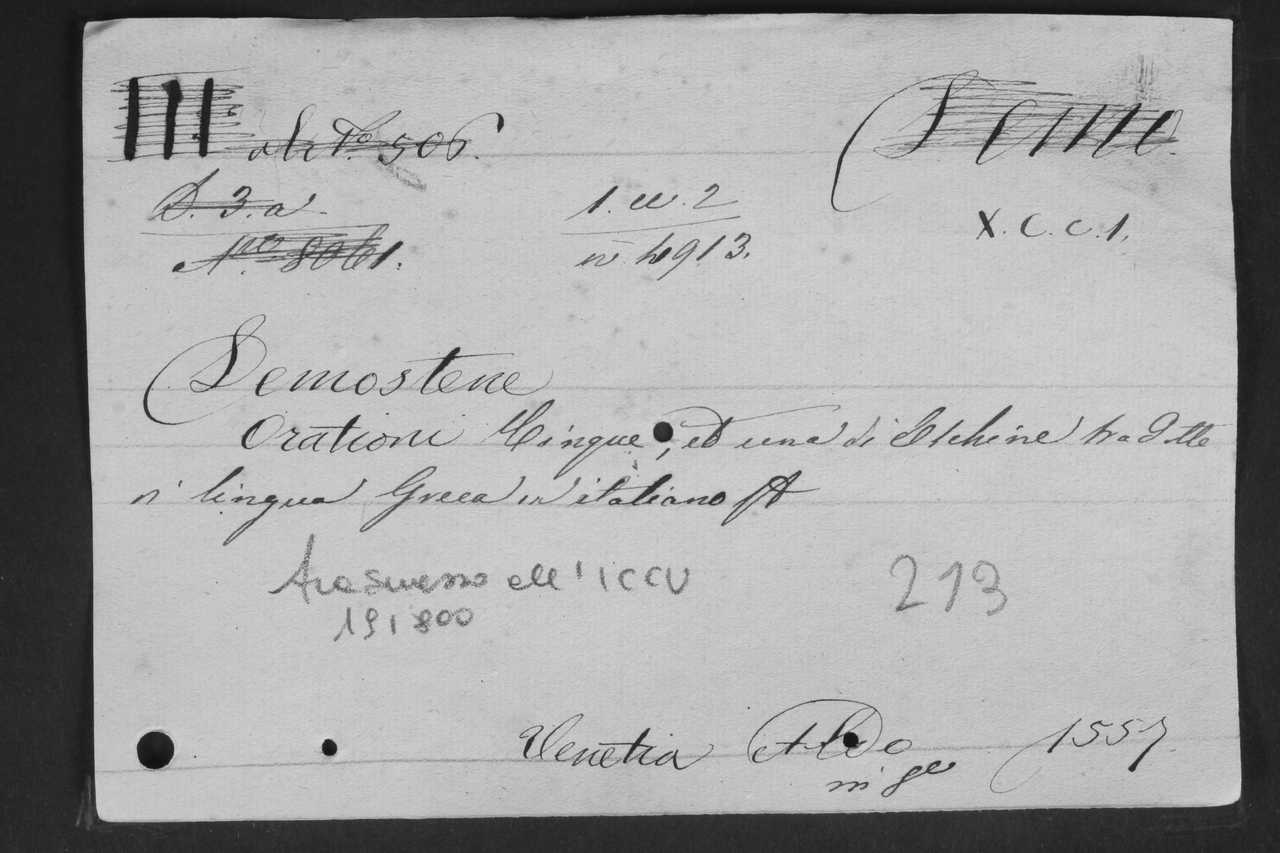 III
506.
D. 3. a
Nro. 8061.
1. ee. 2
n. 4913.
Demo
X. C. c. 1.
Demostene
Orationi Cinque, et una di Eschine tradotte
di lingua Greca in italiano
Trasmesso all' ICCU
191800
213
Venetia Aldo 1557
in 8o